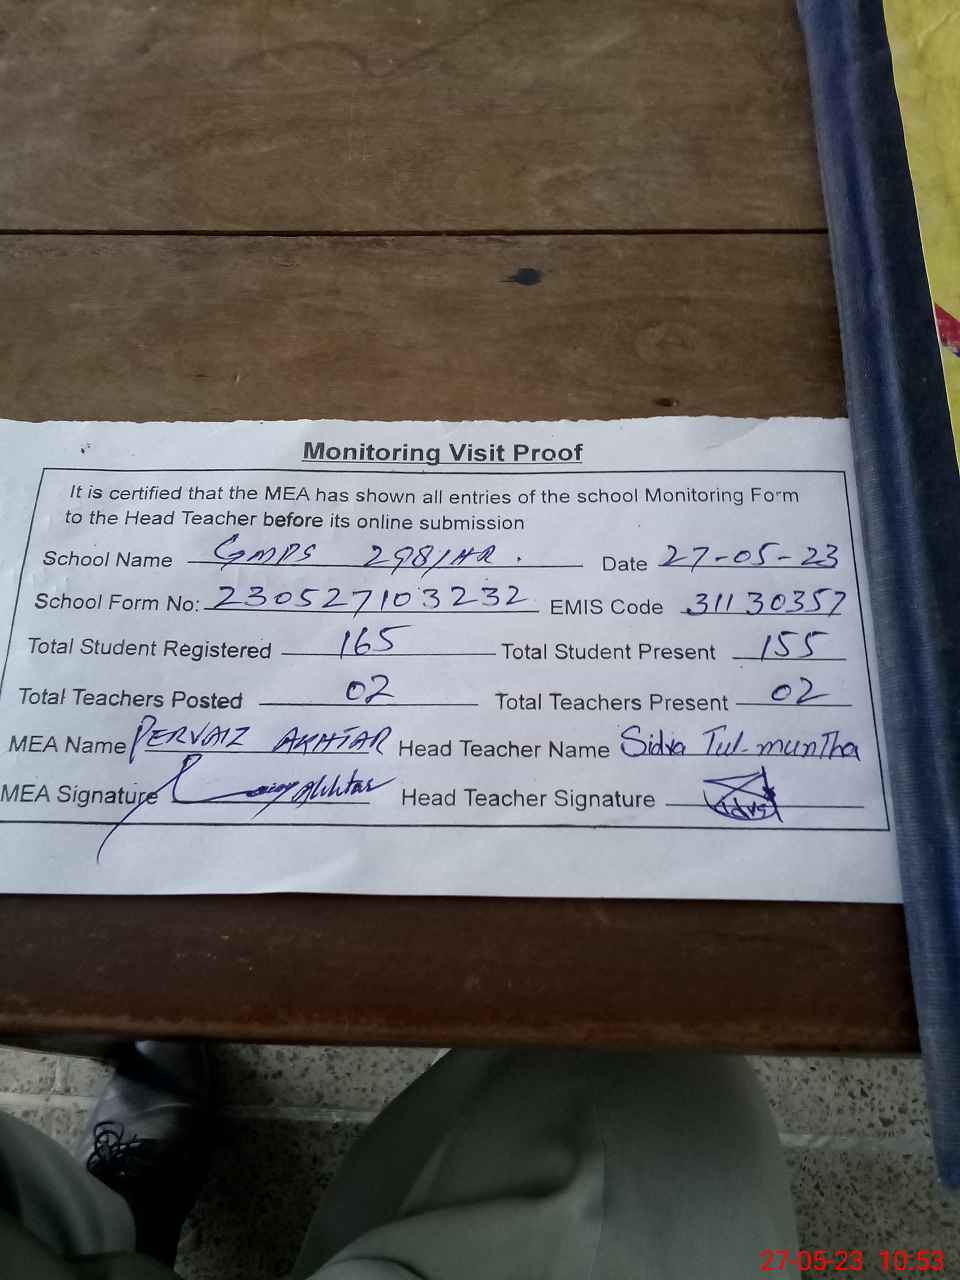 Monitoring Visit Proof
It is certified that the MEA has shown all entries of the school Monitoring Form
to the Head Teacher before its online submission
School Name GMPS 298/HR. Date 27-05-23
School Form No: 230527103232 EMIS Code 31130357
Total Student Registered 165 Total Student Present 155
Total Teachers Posted 02 Total Teachers Present 02
MEA Name PERVAIZ AKHTAR Head Teacher Name Sidra Tul-munTha
MEA Signature Akhtar Head Teacher Signature
27-05-23 10:53